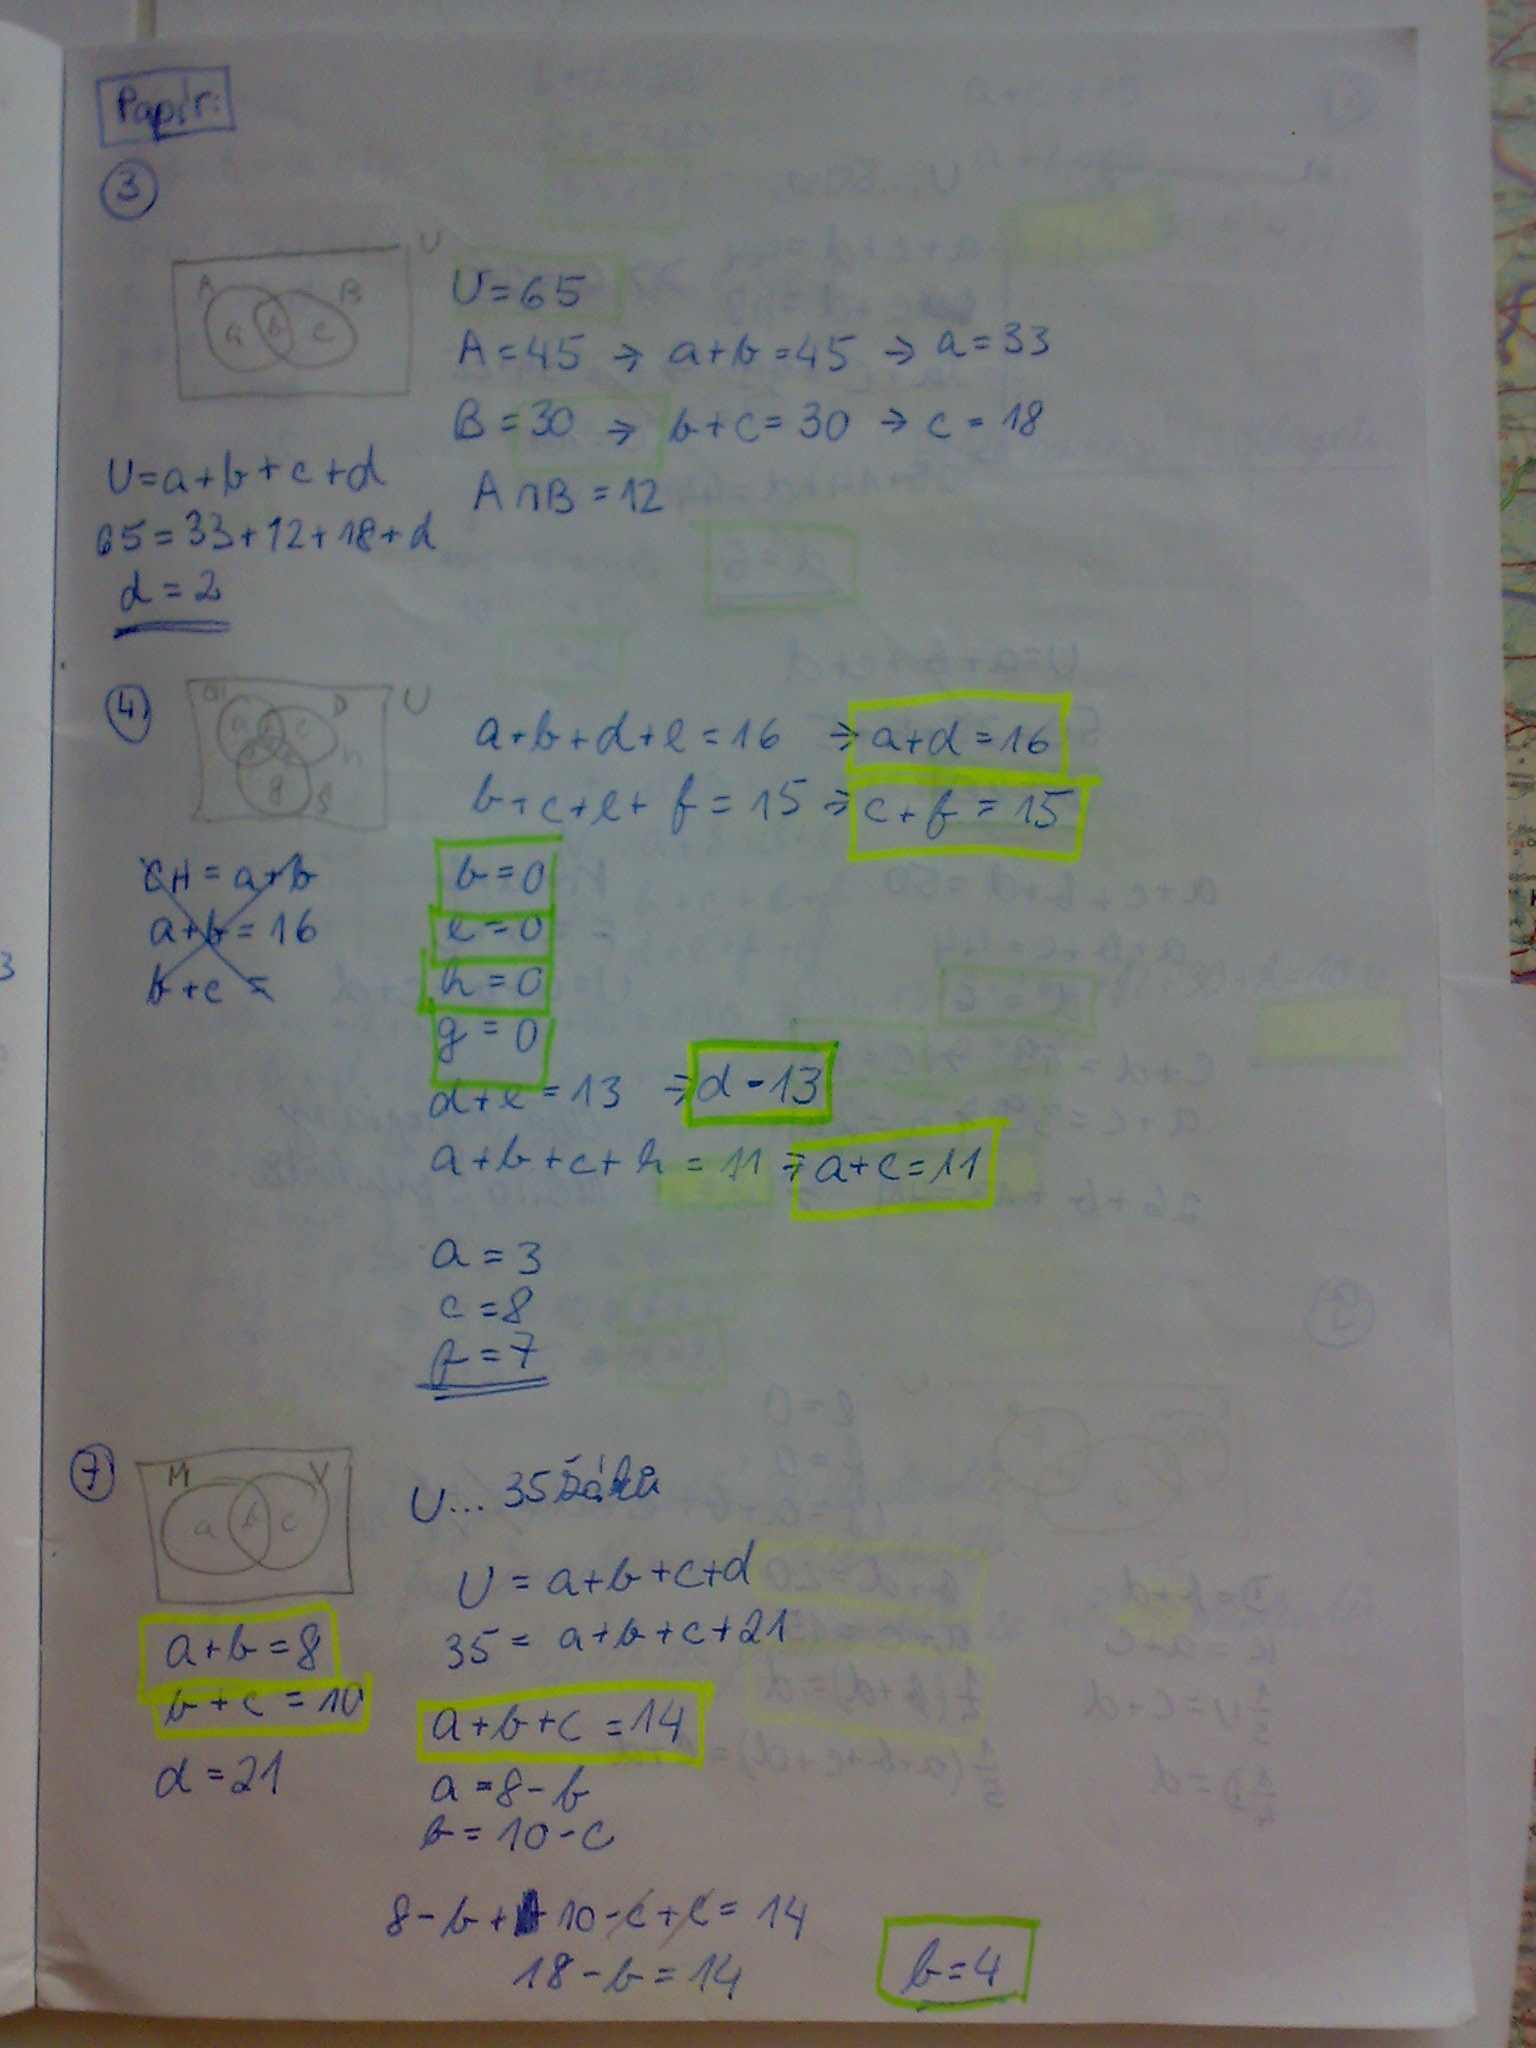 Papír:
3
U
A B
a b c
U=65
A=45 → a+b=45 → a=33
B=30 → b+c=30 → c=18
A∩B=12
U=a+b+c+d
65=33+12+18+d
d=2
4
CH D U
a b c
h
g S
a+b+d+e=16 ⇒ a+d=16
b+c+e+f=15 ⇒ c+f=15
CH=a+b
a+b=16
b+c=
b=0
e=0
h=0
g=0
d+e=13 ⇒ d=13
a+b+c+h=11 ⇒ a+c=11
a=3
c=8
f=7
7
M V
a b c
U... 35 žáků
U=a+b+c+d
35=a+b+c+21
a+b=8
b+c=10
d=21
a+b+c=14
a=8-b
b=10-c
8-b+10-c+c=14
18-b=14
b=4